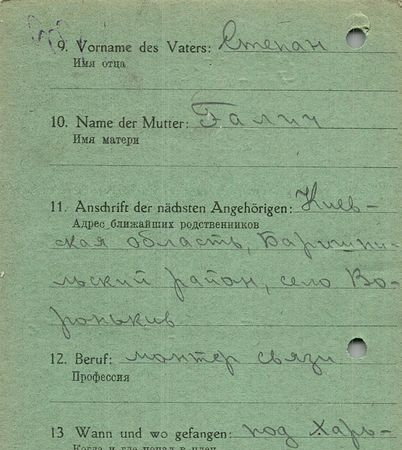 9. Vorname des Vaters: Степан
Имя отца
10. Name der Mutter: Галич
Имя матери
11. Anschrift der nächsten Angehörigen: Киев-
Адрес ближайших родственников
ская область, Баришпи-
льский район, село Во-
роньків
12. Beruf: монтер связи
Профессия
13 Wann und wo gefangen: под Харь-
Когда и где попал в плен